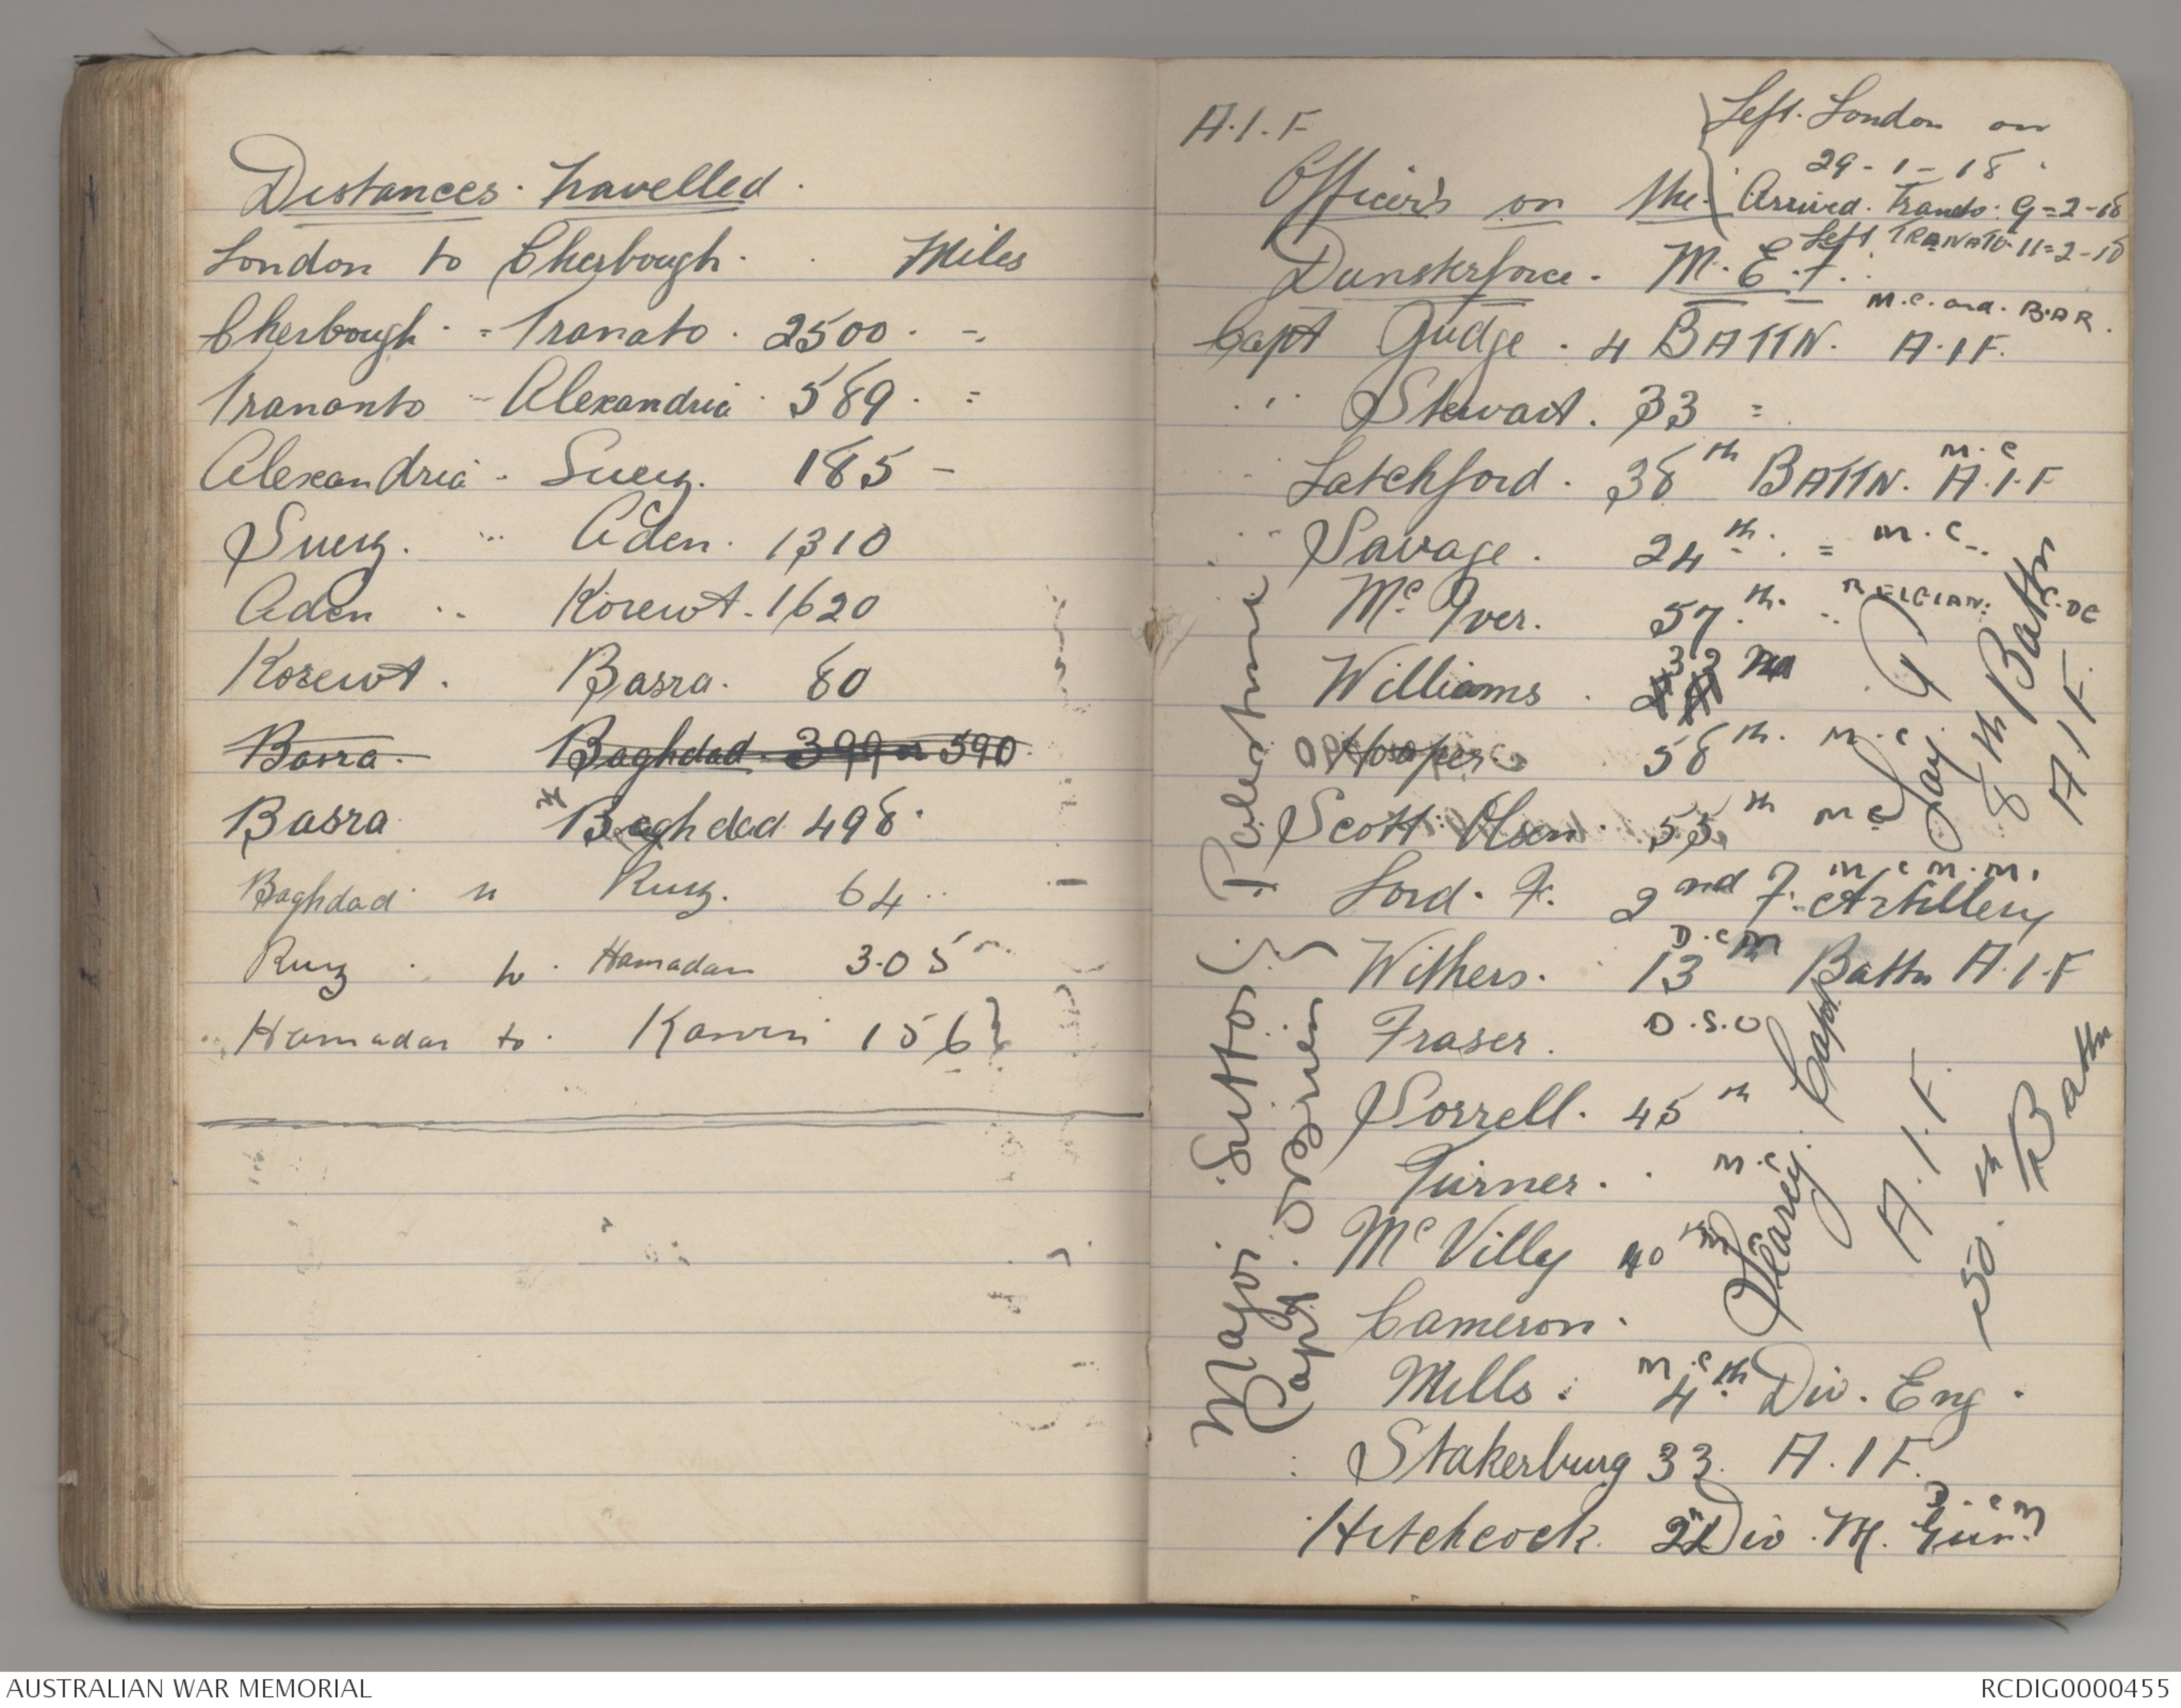 Distances travelled.
London to Cherbough. Miles
Cherbough. = Tranato. 2500. -
Trananto - Alexandria 589. =
Alexandria - Suez. 185 -
Suez. " Aden. 1310
Aden " Korewt. 1620
Korewt. Basra. 80
Basra. Baghdad. 399 or 590
Basra Baghdad 498.
Baghdad " Ruz. 64
Ruz to Hamadan 305
Hamadan to Kasvin 156
A.I.F
Left. London on
29-1-18
Officer's on the
Arrived. Tranto: 9=2-18
Left TRANATO 11=2-18
Dunsterforce. M.E.F.
M.C. and. BAR.
Capt Judge. 4 BATTN. A.I.F.
" Stewart. 33 =
M.C
Latchford. 38th BATTN. A.I.F
Savage. 24th. = M.C.
McIver. 57th. " BELGIAN: C.DE
Williams. 33 rd
Hooper 58th. M.C
Scott. Olsen. 55th MC
M C M.M.
Lord. F. 2nd F. Artillery
D.C.M
Withers. 13th Battn A.I.F
Fraser. D.S.O
Sorrell. 45th
Turner. M.C
McVilly 40th
Cameron.
M.C
Mills. 4th Div. Eng.
Stakerburg 33. A.I.F.
D.C.M
Hitchcock. 2nd Div. M. Gun.
Major Sutton
Capt. O'Brien
Palestine
Lay P
8th Battn
A.I.F.
O'Learey. Capt
A.I.F.
50.th Battn
AUSTRALIAN WAR MEMORIAL
RCDIG0000455